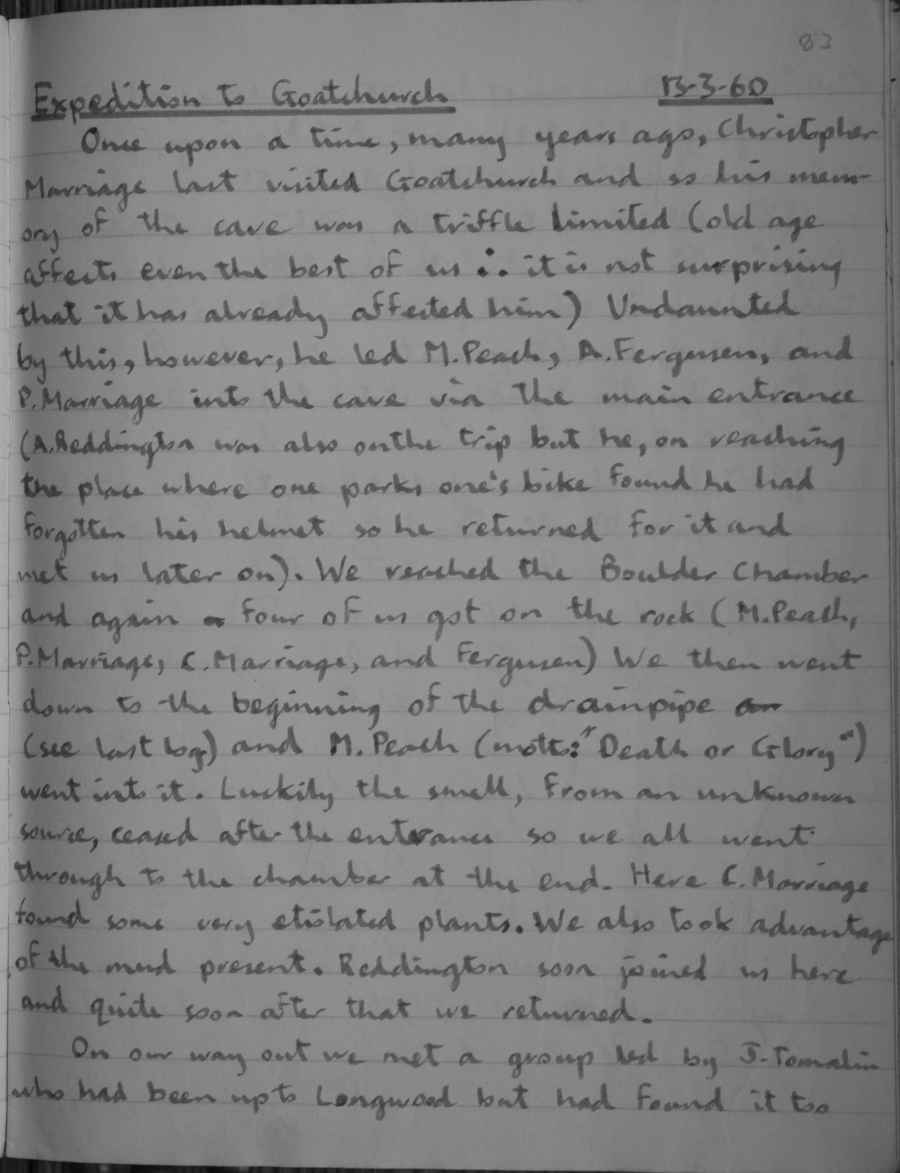 82
Expedition to Goatchurch 13-3-60
Once upon a time, many years ago, Christopher
Marriage last visited Goatchurch and so his mem-
ory of the cave was a triffle limited (old age
affects even the best of us ∴ it is not surprising
that it has already affected him) Undaunted
by this, however, he led M.Peach, A.Fergusen, and
P.Marriage into the cave via the main entrance
(A.Reddington was also on the trip but he, on reaching
the place where one parks one's bike found he had
forgotten his helmet so he returned for it and
met us later on). We reached the Boulder Chamber
and again four of us got on the rock (M.Peach,
P.Marriage, C.Marriage, and Fergusen) We then went
down to the beginning of the drainpipe
(see last log) and M.Peach (motto: "Death or Glory")
went into it. Luckily the smell, from an unknown
source, ceased after the enterance so we all went
through to the chamber at the end. Here C.Marriage
found some very etiolated plants. We also took advantage
of the mud present. Reddington soon joined us here
and quite soon after that we returned.
On our way out we met a group led by J.Tomalin
who had been up to Longwood but had found it too